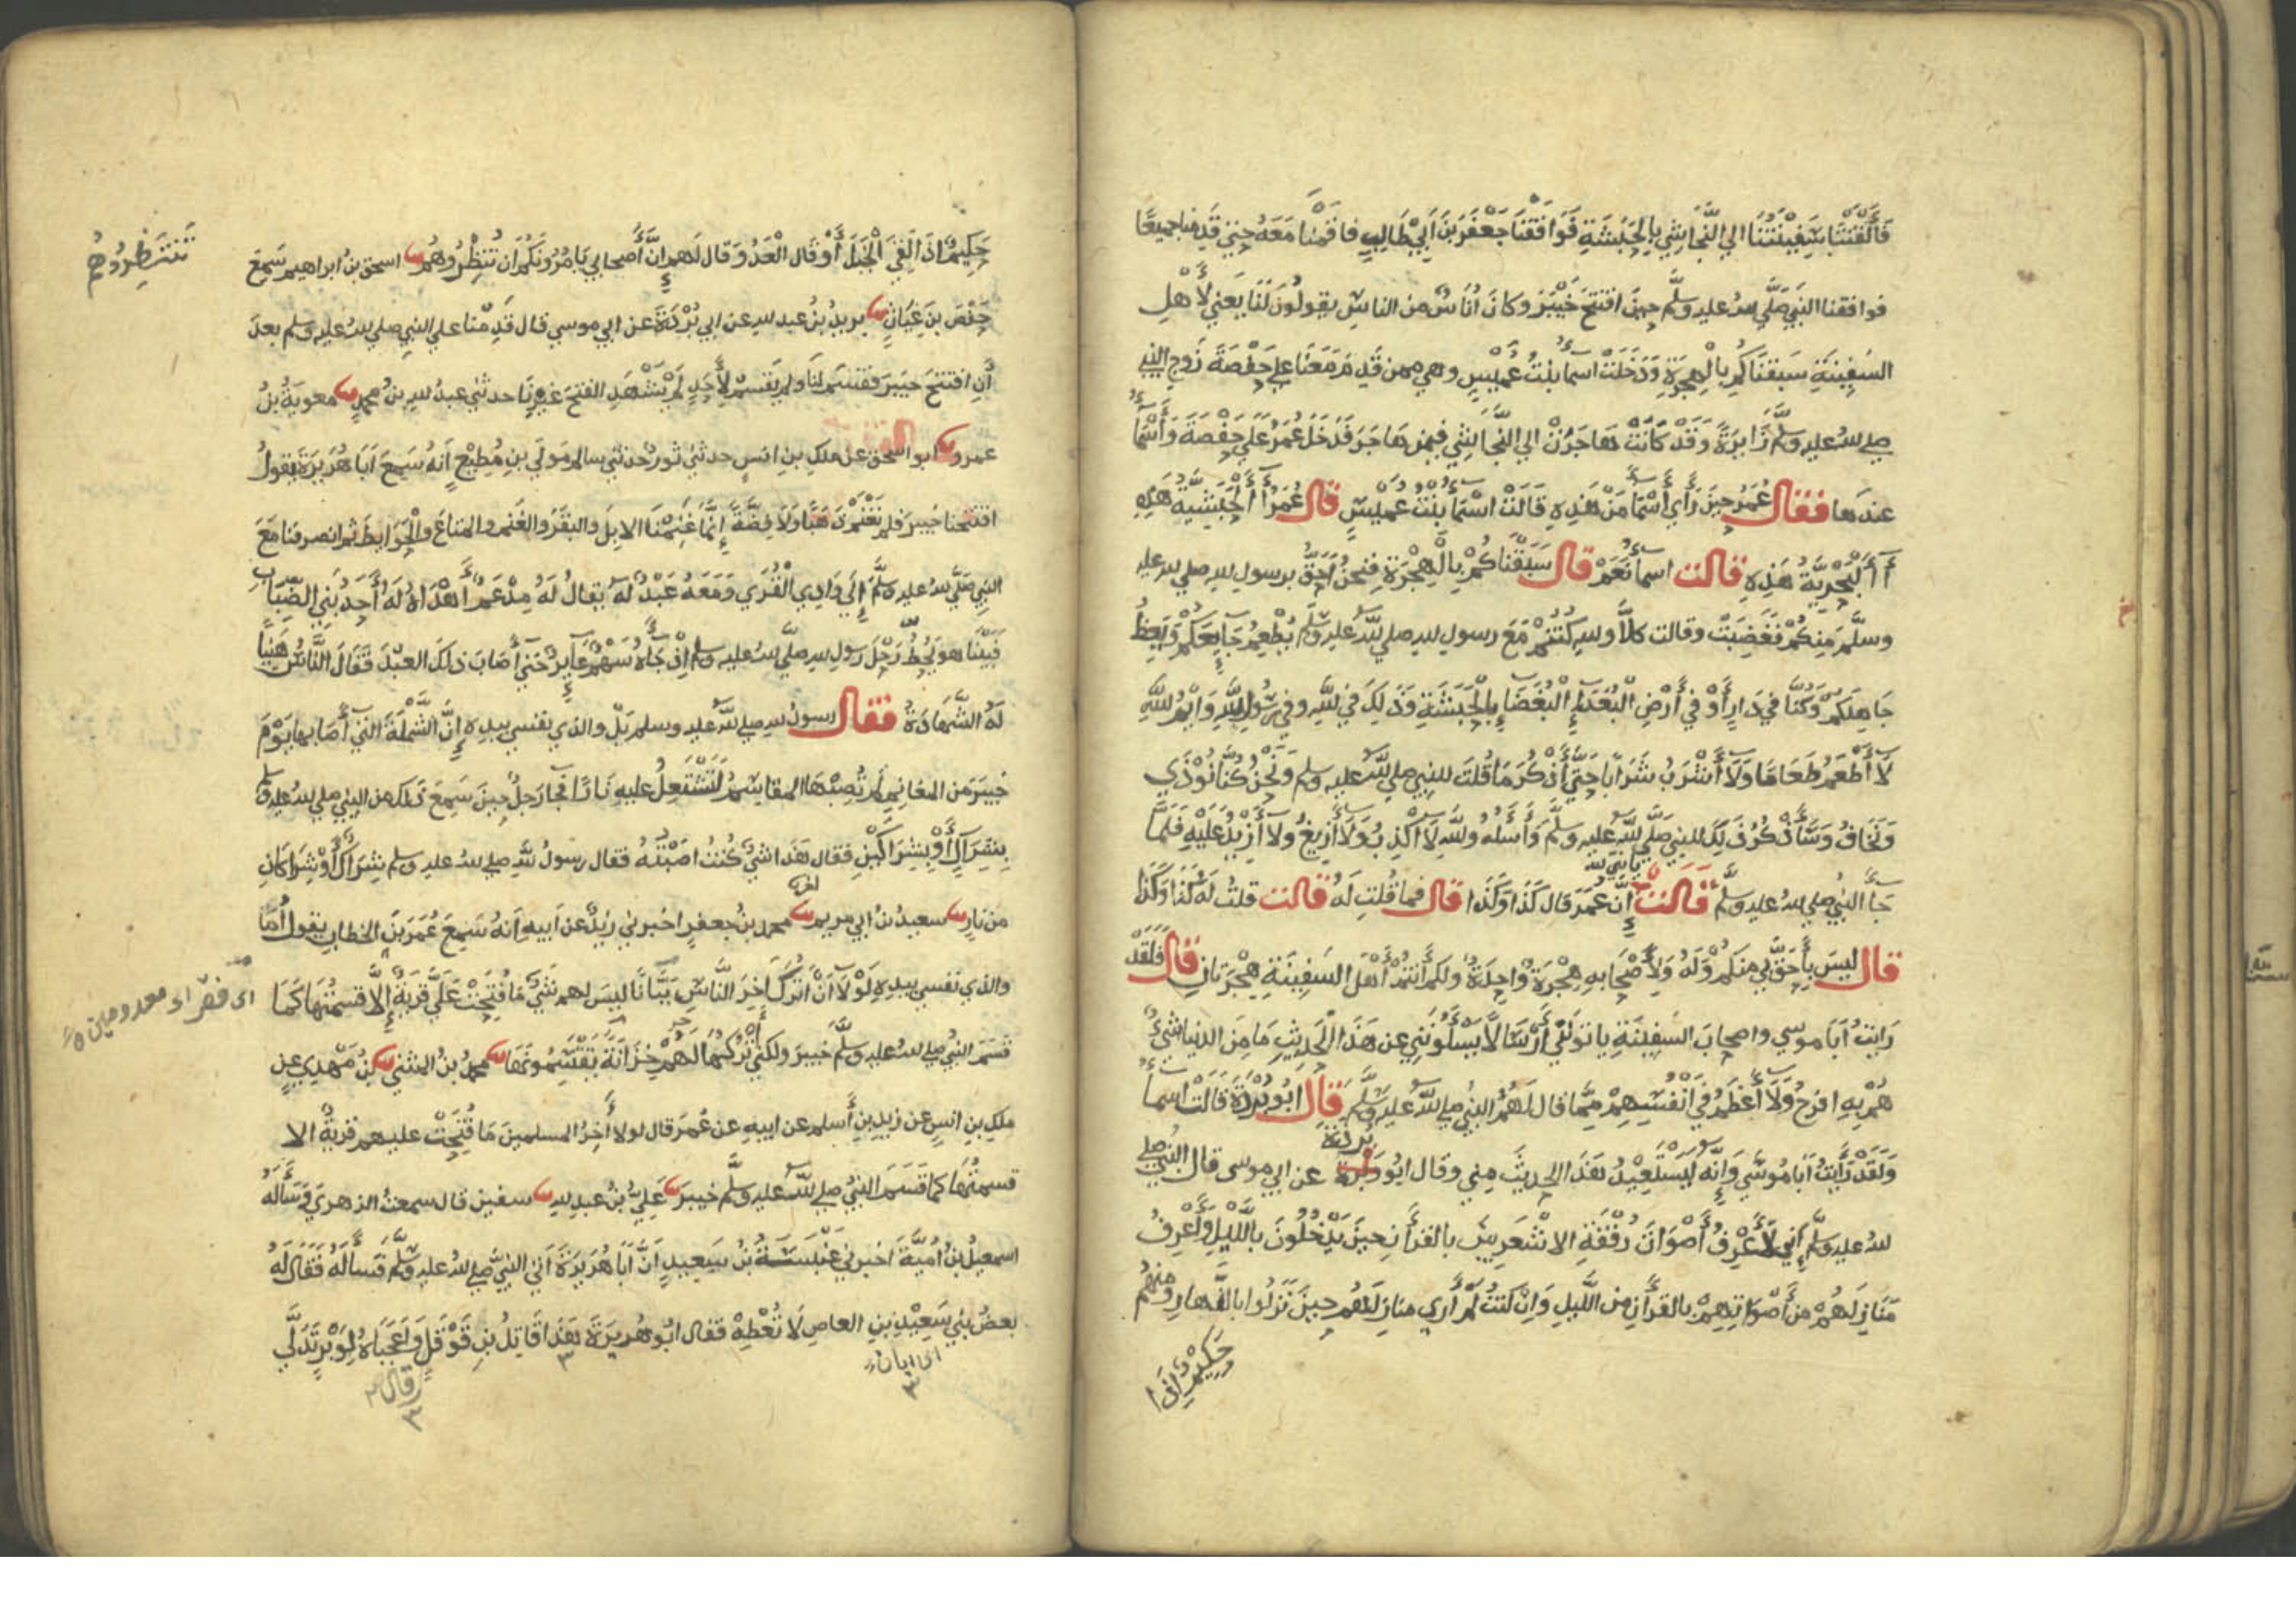 فَأَلْقَتْنَا سَفِينَتُنَا الي النَّجَاشِي بِالحَبَشَةِ فَوَافَقْنَا جَعْفَرَ بْنَ اَبِي طَالِبٍ فاقمْنَا مَعَهُ حتي قَدِمنا جميعًا
فوافقنا النبيَ صَلَّي الله عليه وسلَّم حِينَ افتتحَ خَيْبَرَ وكانَ أُنَاسٌ من الناسِ يقولُونَ لَنَا يَعني لأهلِ
السَّفِينَةِ سَبَقْنَاكُم بِالْهِجْرَةِ وَدَخَلَتْ اسمآءُ بنتُ عُمَيْسٍ وهي ممن قَدِمَ مَعَنَا عَلي حَفْصَةَ زَوجِ النبي
صلي الله عليه وسلم زَايِرَةً وَقَدْ كَانَتْ هَاجَرَتْ الي النَّجَاشِي فيمن هَاجَرَ فَدَخَلَ عُمَرُ عَلَي حَفْصَةَ وَأَسْمَآءُ
عندَها فقال عُمَرُ حِينَ رَأي أَسْمَآءَ مَنْ هَذِهِ قَالَتْ اسْمَآءُ بنْتُ عُمَيْسٍ قال عُمَرُ أَالْحَبَشِيَّةُ هَذِهِ
أَالْبَحْرِيَّةُ هَذِهِ قالت اسمآءُ نَعَمْ قال سَبَقْنَاكُمْ بِالْهِجْرَةِ فنحنُ أَحَقُّ برسول الله صلي الله عليه
وسلَّم مِنكُمْ فَغَضِبَتْ وقالت كلَّا والله كُنْتُمْ مَعَ رسول الله صلي الله عليه وسلم يُطْعِمُ جَايعَكُمْ وَيَعِظُ
جَاهِلَكُمْ وَكُنَّا في دَارِ أَوْ في أَرْضِ الْبُعَدَآءِ الْبُغَضَآءِ بِالْحَبَشَةِ وَذَلِكَ في الله وفي رَسُولِ اللهِ وَايْمُ اللهِ
لَا أَطْعَمُ طَعَامًا وَلَا أَشْرَبُ شَرَابًا حَتَّي أَذْكُرَ مَا قُلْتَ للنبي صلي الله عليه وسلم وَنَحْنُ كُنَّا نُوْذَي
وَنَخَافُ وَسَأَذْكُرُ ذَلِكَ للنبي صَلَّي الله عليه وسلَّمَ وَأَسْأَلُهُ وَاللهِ لَا أَكْذِبُ وَلَا أَزِيغُ وَلَا أَزِيْدُ عَلَيْهِ فَلَمَّا
جَآءَ النبيُ صلي الله عليه وسلَّم قَالَتْ يا نبي الله إِنَّ عُمَرَ قال كَذَا وَكَذَا قال فما قُلْتِ لَهُ قالت قلتُ لَهُ كَذَا وَكَذَا
قال ليسَ بِأَحَقَّ بي مِنكمْ وَلَهُ وَلِأَصْحَابِهِ هِجْرَةٌ وَاحِدَةٌ ولكم أَنتُمْ أَهْلَ السَّفِينَةِ هِجْرَتَانِ قال فَلَقَدْ
رَايتُ أَبَا موسي واصحابَ السَّفِينَةِ ياتونَنِي أَرْسَالًا يَسْأَلُونَنِي عن هَذَا الْحَدِيثِ مَا مِنَ الدنيا شيءٌ
هُمْ بِهِ افرَحُ وَلَا أَعْظَمُ في أَنْفُسِهِمْ مِمَّا قال لَهُمُ النبيُ صلي الله عليه وسلم قَالَ ابُو بُرْدَةَ قَالَتْ اسمآءُ
وَلَقَدْ رَأَيْتُ أَبَا مُوسَي وَإِنَّهُ لَيَسْتَعِيْدُ هَذَا الحديثَ مِني وقال ابُو بُرْدَةَ عن ابي موسي قال النبيُ صلي
الله عليه وسلَّم إِني لَأَعْرِفُ أَصْوَاتَ رُفْقَةِ الاشْعَرِيينَ بالقرآنِ حينَ يَدْخُلُونَ باللَّيْلِ وَأَعْرِفُ
مَنَازِلَهُمْ مِنْ أَصْوَاتِهِمْ بالقرآنِ مِنَ اللَّيلِ وَاِنْ كنتُ لَمْ أَرَ منازِلَهُم حِينَ نَزَلُوا بالنَّهَارِ وَمنهم
حَكِيمٌ اذا
حَكِيمٌ اذَا لَقِيَ الْخَيْلَ أَوْ قَال الْعَدُوَّ قال لَهم إِنَّ أَصحابي يَامُرُونَكُم أن تَنْظُرُوهُم اسحق بنُ ابراهيم سَمِعَ
تَنْتَظِرُوهُم
حَفْصَ بنَ غِيَاثٍ بريدُ بنُ عبد الله عن ابي بُرْدَةَ عن ابي موسي قال قَدِمْنا علي النبي صلي الله عليه وسلم بعدَ
أَنِ افتتحَ خيبرَ فقسَم لنَا ولم يَقْسِمْ لِأَحَدٍ لَمْ يَشْهَدِ الفتحَ غيرَنَا حدثني عبدُ الله بنُ محمدٍ معويةُ بنُ
عمرو ابو اسحق عن ملك بن انسٍ حدثني ثورٌ حدثني سالم مولي بنِ مُطِيْعٍ أَنهُ سَمِعَ أَبَا هُرَيرَةَ يقولُ
افتتحنا خيبرَ فلم نَغْنَمْ ذَهَبًا وَلَا فِضَّةً إِنَّمَا غَنِمْنَا الابِلَ والبقَرَ والغَنَمَ والمتاعَ والْحَوَايِطَ ثم انصرفنا مَعَ
النبي صَلَّي الله عليه وسلَّم إِلَي وَادِي الْقُرَي وَمَعَهُ عَبْدٌ لَهُ يقالُ لَهُ مِدْعَمٌ أَهْدَاهُ لَهُ أَحَدُ بَنِي الضِّبَابِ
فَبَيْنَا هو يَحُطُّ رَحْلَ رَسُولِ الله صلَّي الله عليه وسلم إِذْ جَآءَهُ سَهْمٌ عَآيِرٌ حَتي أَصَابَ ذلكَ العبْدَ فَقَالَ النَّاسُ هَنِيًا
لَهُ الشَّهَادَةُ فقال رسولُ الله صلي الله عليه وسلم بَلْ والذي نفسي بيدِهِ إِنَّ الشَّمْلَةَ التي أَصَابها يَوْمَ
خَيبَرَ مِن المغانِمِ لَمْ تُصِبْهَا المقاسِمُ لَتَشْتَعِلُ عليهِ نَارًا فجآ رَجلٌ حينَ سَمِعَ ذلك من النبي صلي الله عليه وسلم
بِشِرَاكٍ أَوْ بِشِرَاكَيْنِ فقال هَذَا شيٌ كُنتُ اصَبْتُهُ فقال رسولُ اللهِ صلي الله عليه وسلم شِرَاكٌ أَوْ شِرَاكَانِ
من نَارٍ سعيدُ بنُ ابي مريم محمد بنُ جعفرٍ اخبرني زيدٌ عن أبيهِ أَنهُ سَمِعَ عُمَرَ بنَ الخطابِ يقول أَمَا
والذي نفسي بيدِهِ لَوْلَا أَنْ أَتْرُكَ آخِرَ النَّاسِ بَبَّانًا ليسَ لهم شيٌ مَا فُتِحَتْ عَلَيَّ قَرْيَةٌ إِلَّا قسمتُهَا كَمَا
اي فقراء معدومين
قَسَمَ النبيُ صلي الله عليه وسلَّم خَيبرَ ولكني أَتْرُكُهَا لَهُمْ خِزَانَةً يَقْتَسِمُونَهَا محمدُ بنُ المثنى بنُ مَهْدِيٍ عن
ملكِ بنِ انسٍ عن زيدِ بنِ أَسلم عن ابيهِ عن عُمَرَ قال لولا أَخِرُ المسلمينَ مَا فُتِحَتْ عليهم قريةٌ الا
قسمتُهَا كما قَسَمَ النبيُ صلي الله عليه وسلَّم خيبرَ عَلِيُّ بنُ عبدِ الله سفين قال سمعتُ الزهريَ وَسَأَلَهُ
اسمعيلُ بنُ أُمَيَّةَ اخبرني عَنْبَسَةُ بنُ سَعِيدٍ أَنَّ أَبَا هُرَيرَةَ أَتي النبيَ صلي الله عليه وسلَّم فَسَأَلَهُ فَقَالَ لَهُ
بعضُ بَنِي سَعِيْدِ بنِ العاصِ لَا تُعْطِهْ فقال ابُو هُريرَةَ هَذَا قَاتِلُ بنِ قَوْقَلٍ وَاعَجَبَاهُ لِوَبْرٍ تَدَلَّي
اي ابان
قال